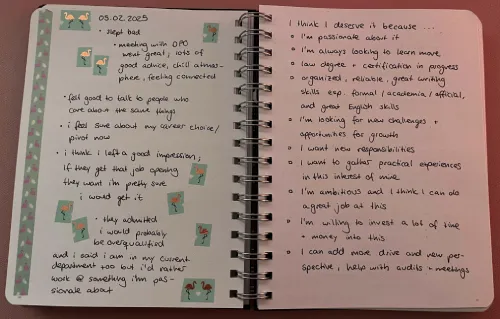 05.02.2025
• slept bad
• meeting with DPO
went great, lots of
good advice, chill atmos-
phere, feeling connected
• feel good to talk to people who
care about the same things
• i feel sure about my career choice/
pivot now
• i think i left a good impression;
If they get that job opening
they want i'm pretty sure
i would get it
• they admitted
i would probably
be overqualified
and i said i am in my current
department too but i'd rather
work @ something i'm pas-
sionate about
I think I deserve it because ...
o I'm passionate about it
o I'm always looking to learn more
o law degree + certification in progress
o organized, reliable, great writing
skills esp. formal/academia/official,
and great English skills
o I'm looking for new challenges +
opportunities for growth
o I want new responsibilities
o I want to gather practical experiences
in this interest of mine
o I'm ambitious and I think I can do
a great job at this
o I'm willing to invest a lot of time
+ money into this
o I can add more drive and new per-
spective, help with audits + meetings